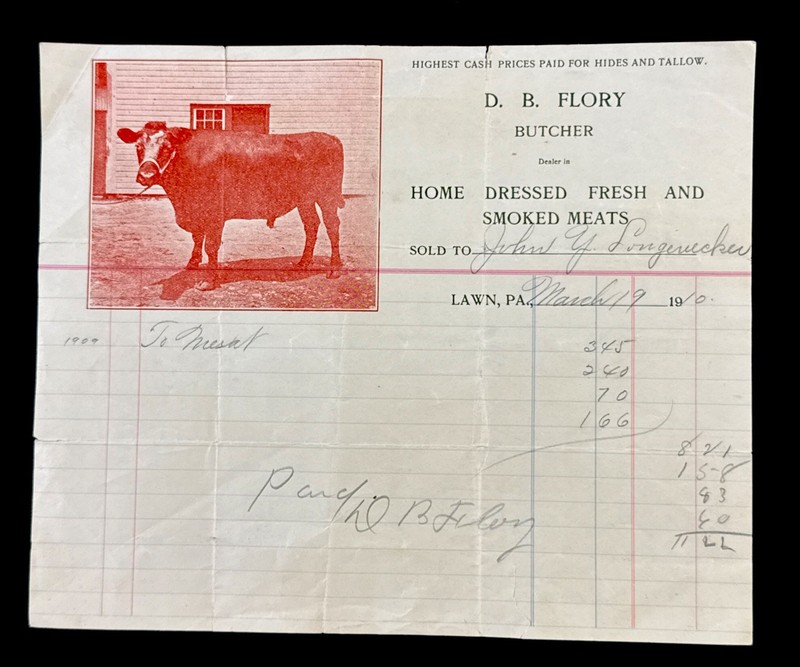 HIGHEST CASH PRICES PAID FOR HIDES AND TALLOW.
D. B. FLORY
BUTCHER
Dealer in
HOME DRESSED FRESH AND
SMOKED MEATS
SOLD TO John Y. Longenecker
LAWN, PA., March 19 1910.
1909 To Meat 345
240
70
166
821
158
83
60
1122
Paid D B Flory